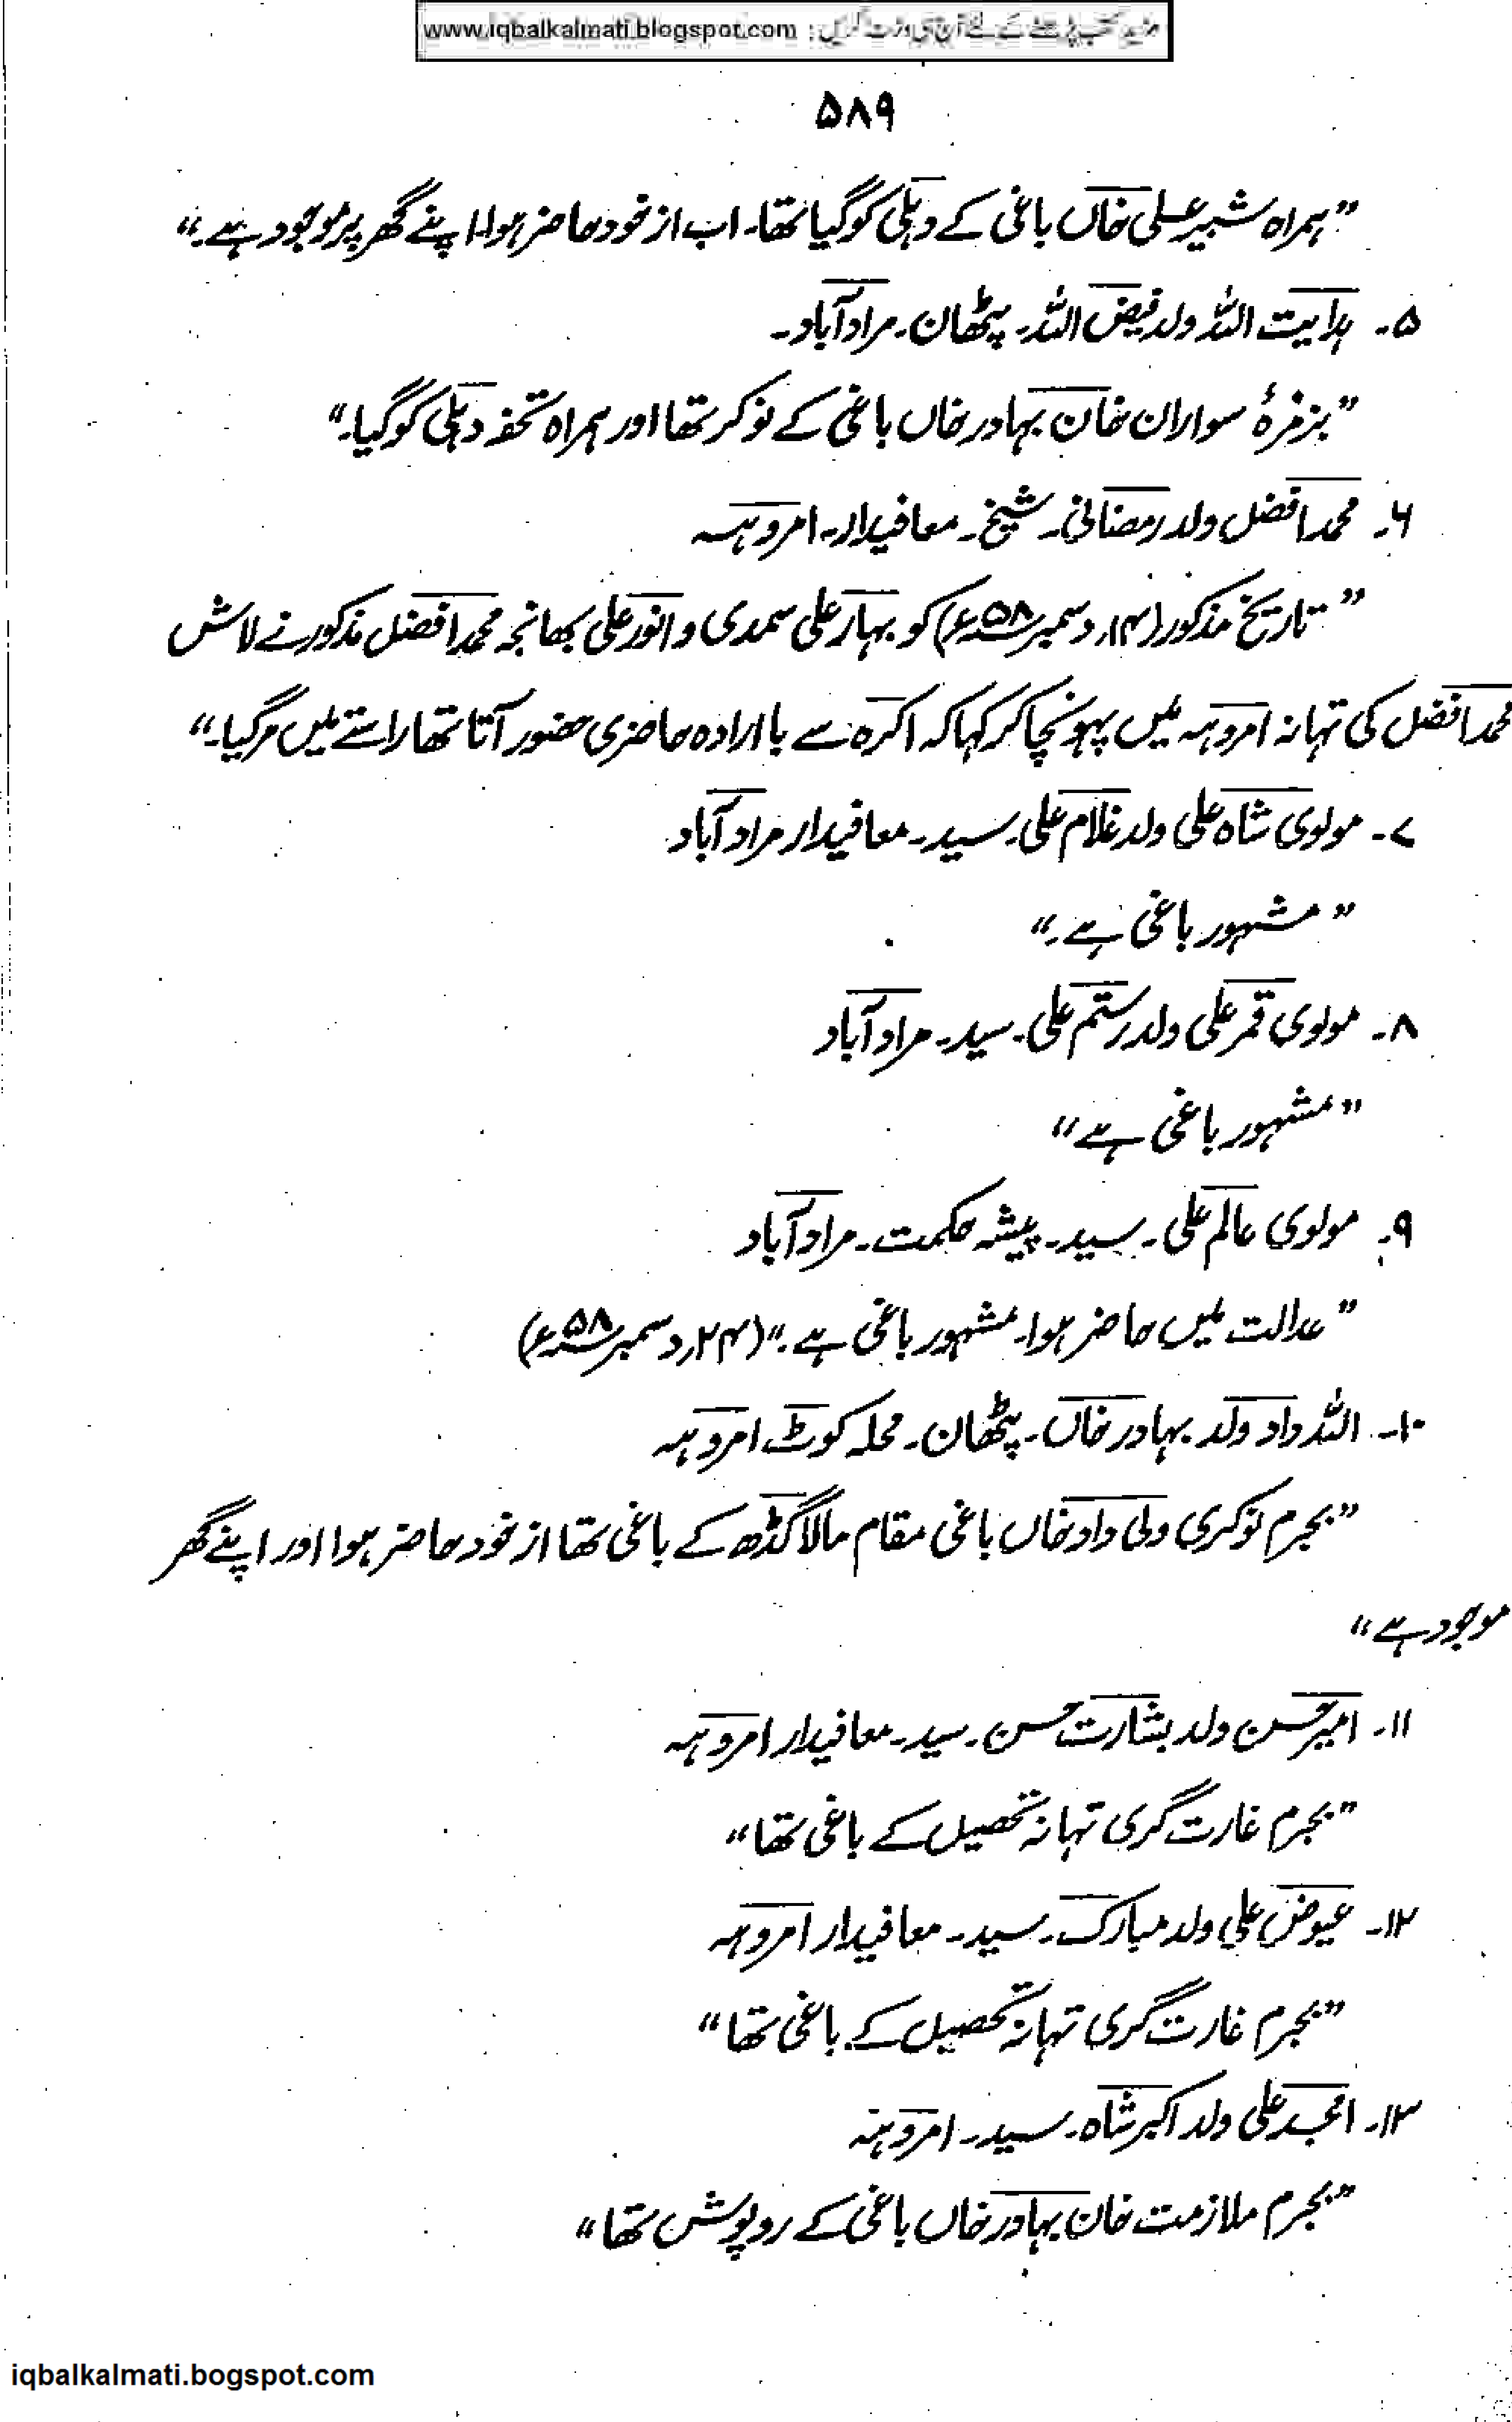 www.iqbalkalmati.blogspot.com : مزید کتب پڑھنے کے لئے آج ہی وزٹ کریں
۵۸۹
”ہمراہ شبیر علی خاں باغی کے دہلی کو گیا تھا۔ اب از خود حاضر ہوا اپنے گھر پر موجود ہے۔“
۵۔ ہدایت اللہ ولد فیض اللہ۔ پٹھان۔ مرادآباد۔
”بزمرۂ سواران خان بہادر خاں باغی کے نوکر تھا اور ہمراہ تحفہ دہلی کو گیا۔“
۶۔ محمد افضل ولد رمضانی۔ شیخ۔ معافیدار۔ امروہہ
”تاریخ مذکور (۱۴؍ دسمبر ۵۸ء) کو بہار علی سمدی و انور علی بھانجہ محمد افضل مذکور نے لاش
محمد افضل کی تہانہ امروہہ میں پہونچا کر کہا کہ اکرہ سے با ارادہ حاضری حضور آتا تھا راستے میں مر گیا۔“
۷۔ مولوی شاہ علی ولد غلام علی۔ سید۔ معافیدار مرادآباد
”مشہور باغی ہے۔“
۸۔ مولوی قمر علی ولد رستم علی۔ سید۔ مرادآباد
”مشہور باغی ہے“
۹۔ مولوی عالم علی۔ سید۔ پیشہ حکمت۔ مرادآباد
”عدالت میں حاضر ہوا۔ مشہور باغی ہے۔“ (۲۴؍ دسمبر ۵۸ء)
۱۰۔ اللہ داد ولد بہادر خاں۔ پٹھان۔ محلہ کوٹ امروہہ
”بجرم نوکری ولی داد خاں باغی مقام مالاگڈھ کے باغی تھا از خود حاضر ہوا اور اپنے گھر
موجود ہے“
۱۱۔ امیر حسن ولد بشارت حسن۔ سید۔ معافیدار امروہہ
”بجرم غارت گری تہانہ تحصیل کے باغی تھا“
۱۲۔ عیوض علی ولد مبارک۔ سید۔ معافیدار امروہہ
”بجرم غارت گری تہانہ تحصیل کے باغی تھا“
۱۳۔ امجد علی ولد اکبر شاہ۔ سید۔ امروہہ
”بجرم ملازمت خان بہادر خاں باغی کے روپوش تھا“
iqbalkalmati.bogspot.com